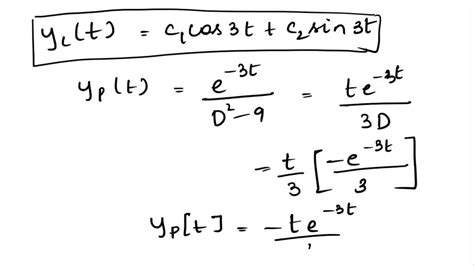 y_c(t) = c₁cos3t + c₂sin3t
y_p(t) = e^{-3t} / (D² - 9) = te^{-3t} / 3D
= t/3 [ -e^{-3t} / 3 ]
y_p[t] = -te^{-3t} /